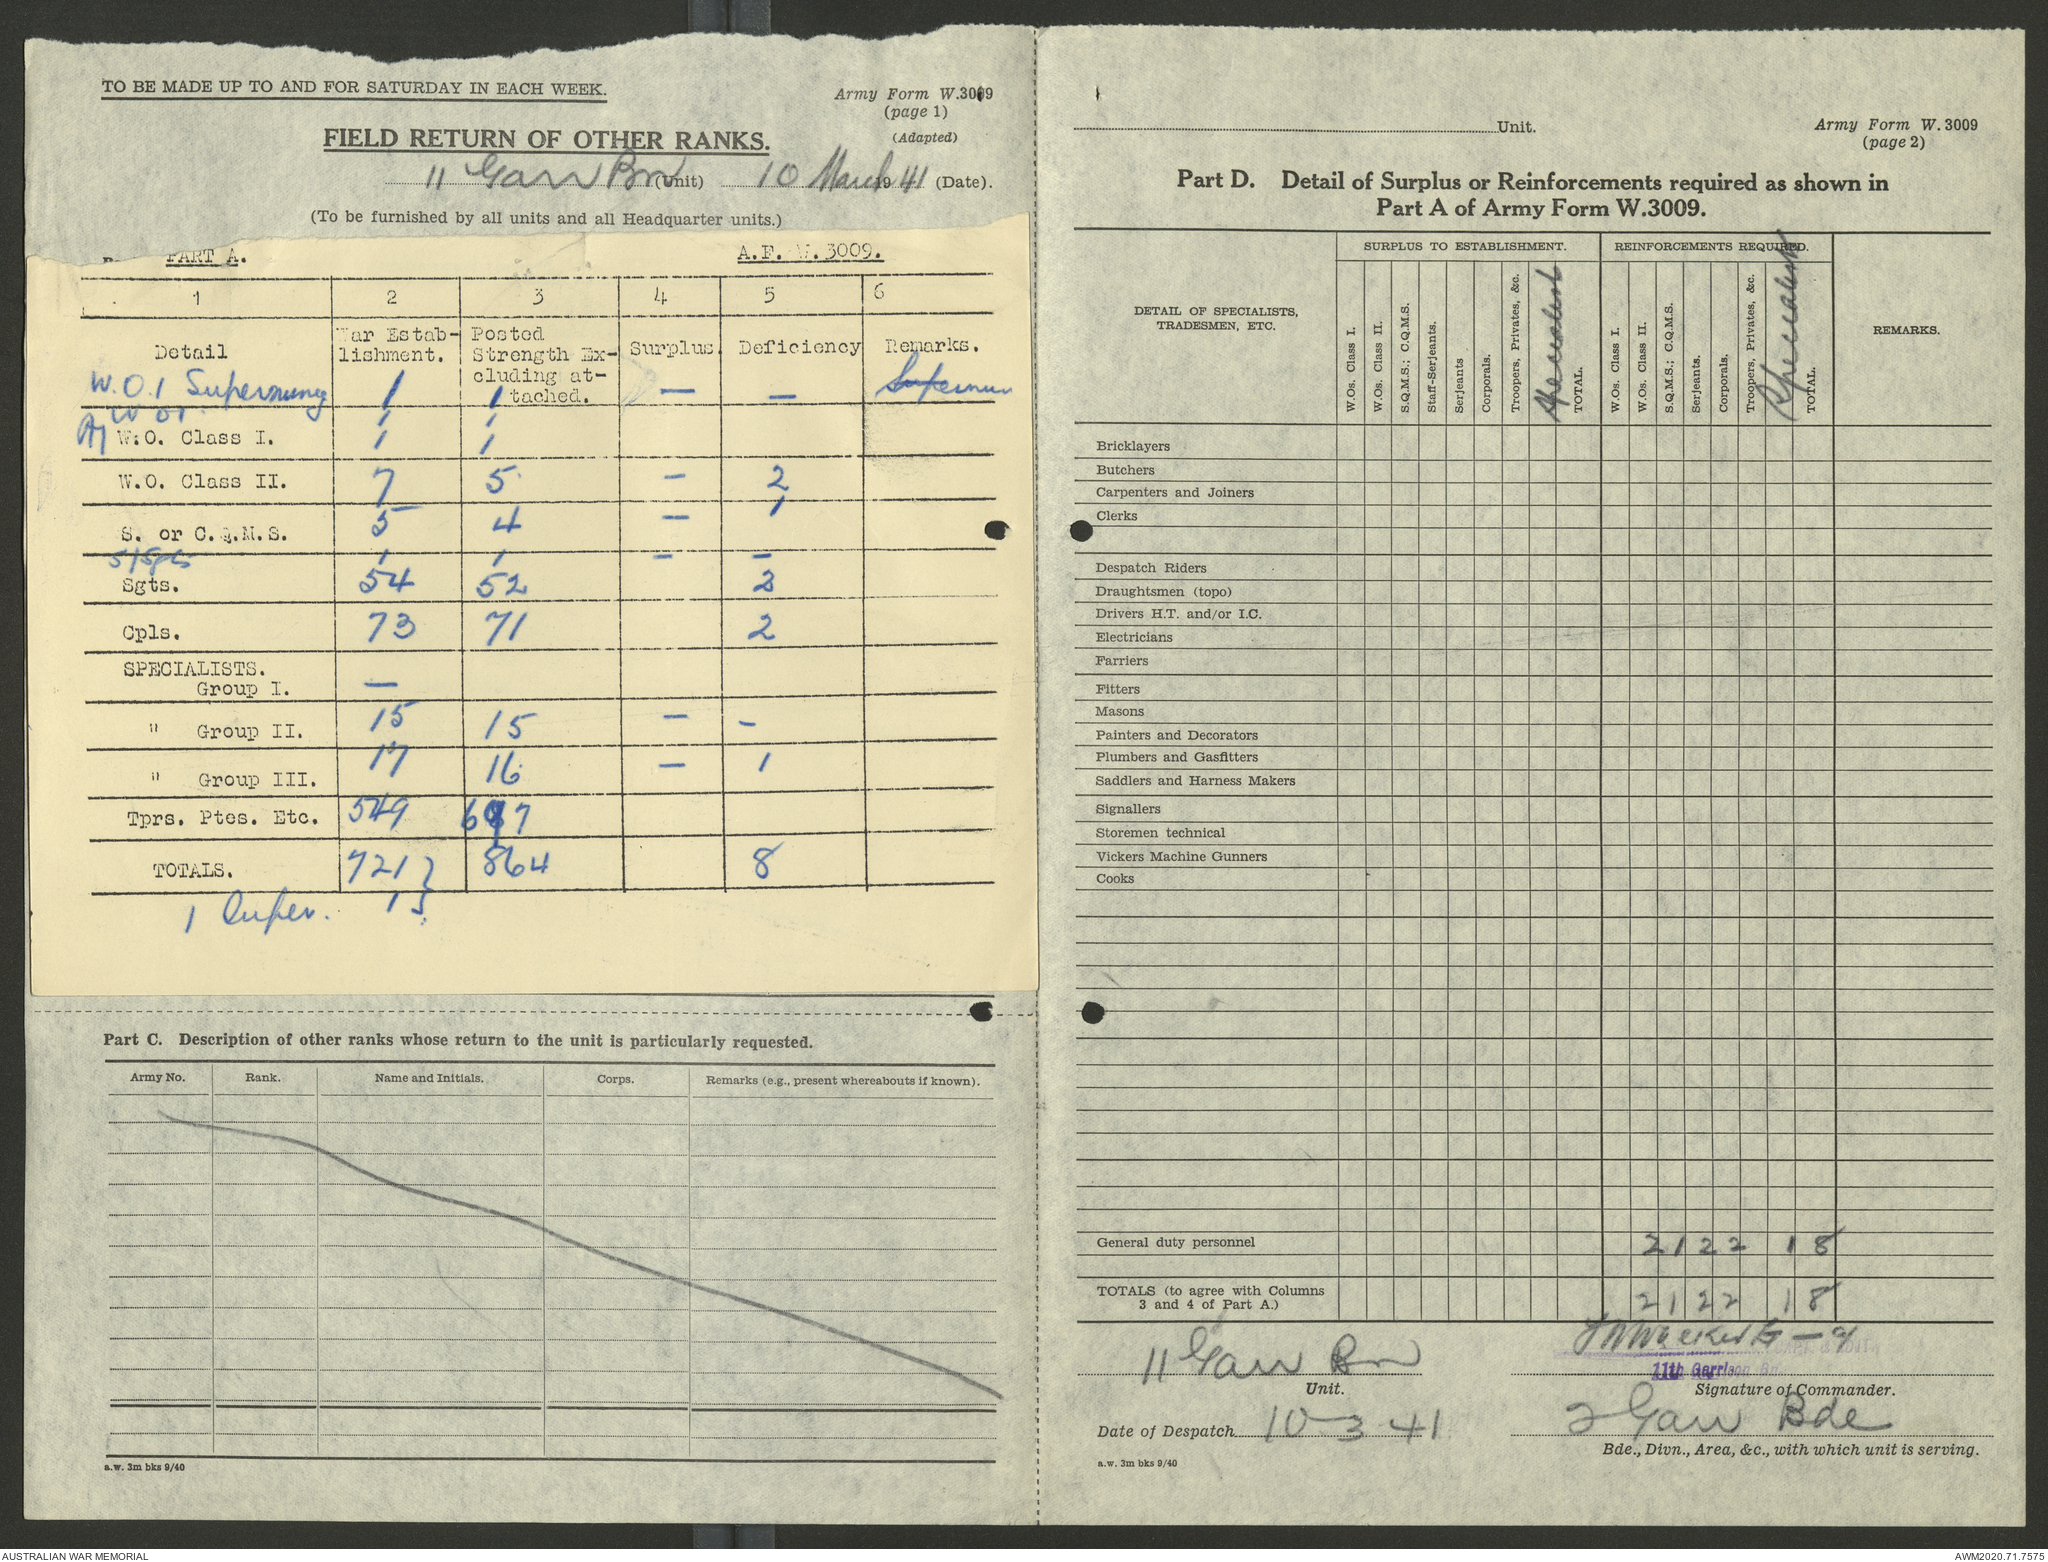 TO BE MADE UP TO AND FOR SATURDAY IN EACH WEEK.
Army Form W.3009
(page 1)
(Adapted)
FIELD RETURN OF OTHER RANKS.
11 Garr Bn (Unit) 10 March 1941 (Date).
(To be furnished by all units and all Headquarter units.)
PART A. A.F. W.3009.
1 2 3 4 5 6
Detail War Estab-lishment. Posted Strength Ex-cluding at-tached. Surplus. Deficiency Remarks.
W.O.1 1 1 — —
W O I 1 1
W.O. Class I. 1 1
W.O. Class II. 7 5 — 2
S. or C.Q.M.S. 5 4 — 1
S/Sgts 1 1 — —
Sgts. 54 52 2
Cpls. 73 71 2
SPECIALISTS.
Group I. —
" Group II. 15 15 — -
" Group III. 17 16 — 1
Tprs. Ptes. Etc. 549 697
TOTALS. 721 } 864 8
1 Super. 1 }
Part C. Description of other ranks whose return to the unit is particularly requested.
Army No. Rank. Name and Initials. Corps. Remarks (e.g., present whereabouts if known).
a.w. 3m bks 9/40
Unit.
Army Form W.3009
(page 2)
Part D. Detail of Surplus or Reinforcements required as shown in
Part A of Army Form W.3009.
DETAIL OF SPECIALISTS,
TRADESMEN, ETC.
SURPLUS TO ESTABLISHMENT.
REINFORCEMENTS REQUIRED.
REMARKS.
W.Os. Class I.
W.Os. Class II.
S.Q.M.S.; C.Q.M.S.
Staff-Serjeants.
Serjeants
Corporals.
Troopers, Privates, &c.
Specialist
TOTAL.
W.Os. Class I.
W.Os. Class II.
S.Q.M.S.; C.Q.M.S.
Serjeants.
Corporals.
Troopers, Privates, &c.
Specialist
TOTAL.
Bricklayers
Butchers
Carpenters and Joiners
Clerks
Despatch Riders
Draughtsmen (topo)
Drivers H.T. and/or I.C.
Electricians
Farriers
Fitters
Masons
Painters and Decorators
Plumbers and Gasfitters
Saddlers and Harness Makers
Signallers
Storemen technical
Vickers Machine Gunners
Cooks
General duty personnel 2 1 2 2 1 8
TOTALS (to agree with Columns
3 and 4 of Part A.) 2 1 2 2 1 8
11 Garr Bn
Unit.
11th Garrison Bn.
Signature of Commander.
Date of Despatch 10-3-41
2 Garr Bde
Bde., Divn., Area, &c., with which unit is serving.
a.w. 3m bks 9/40
AUSTRALIAN WAR MEMORIAL
AWM2020.71.7575